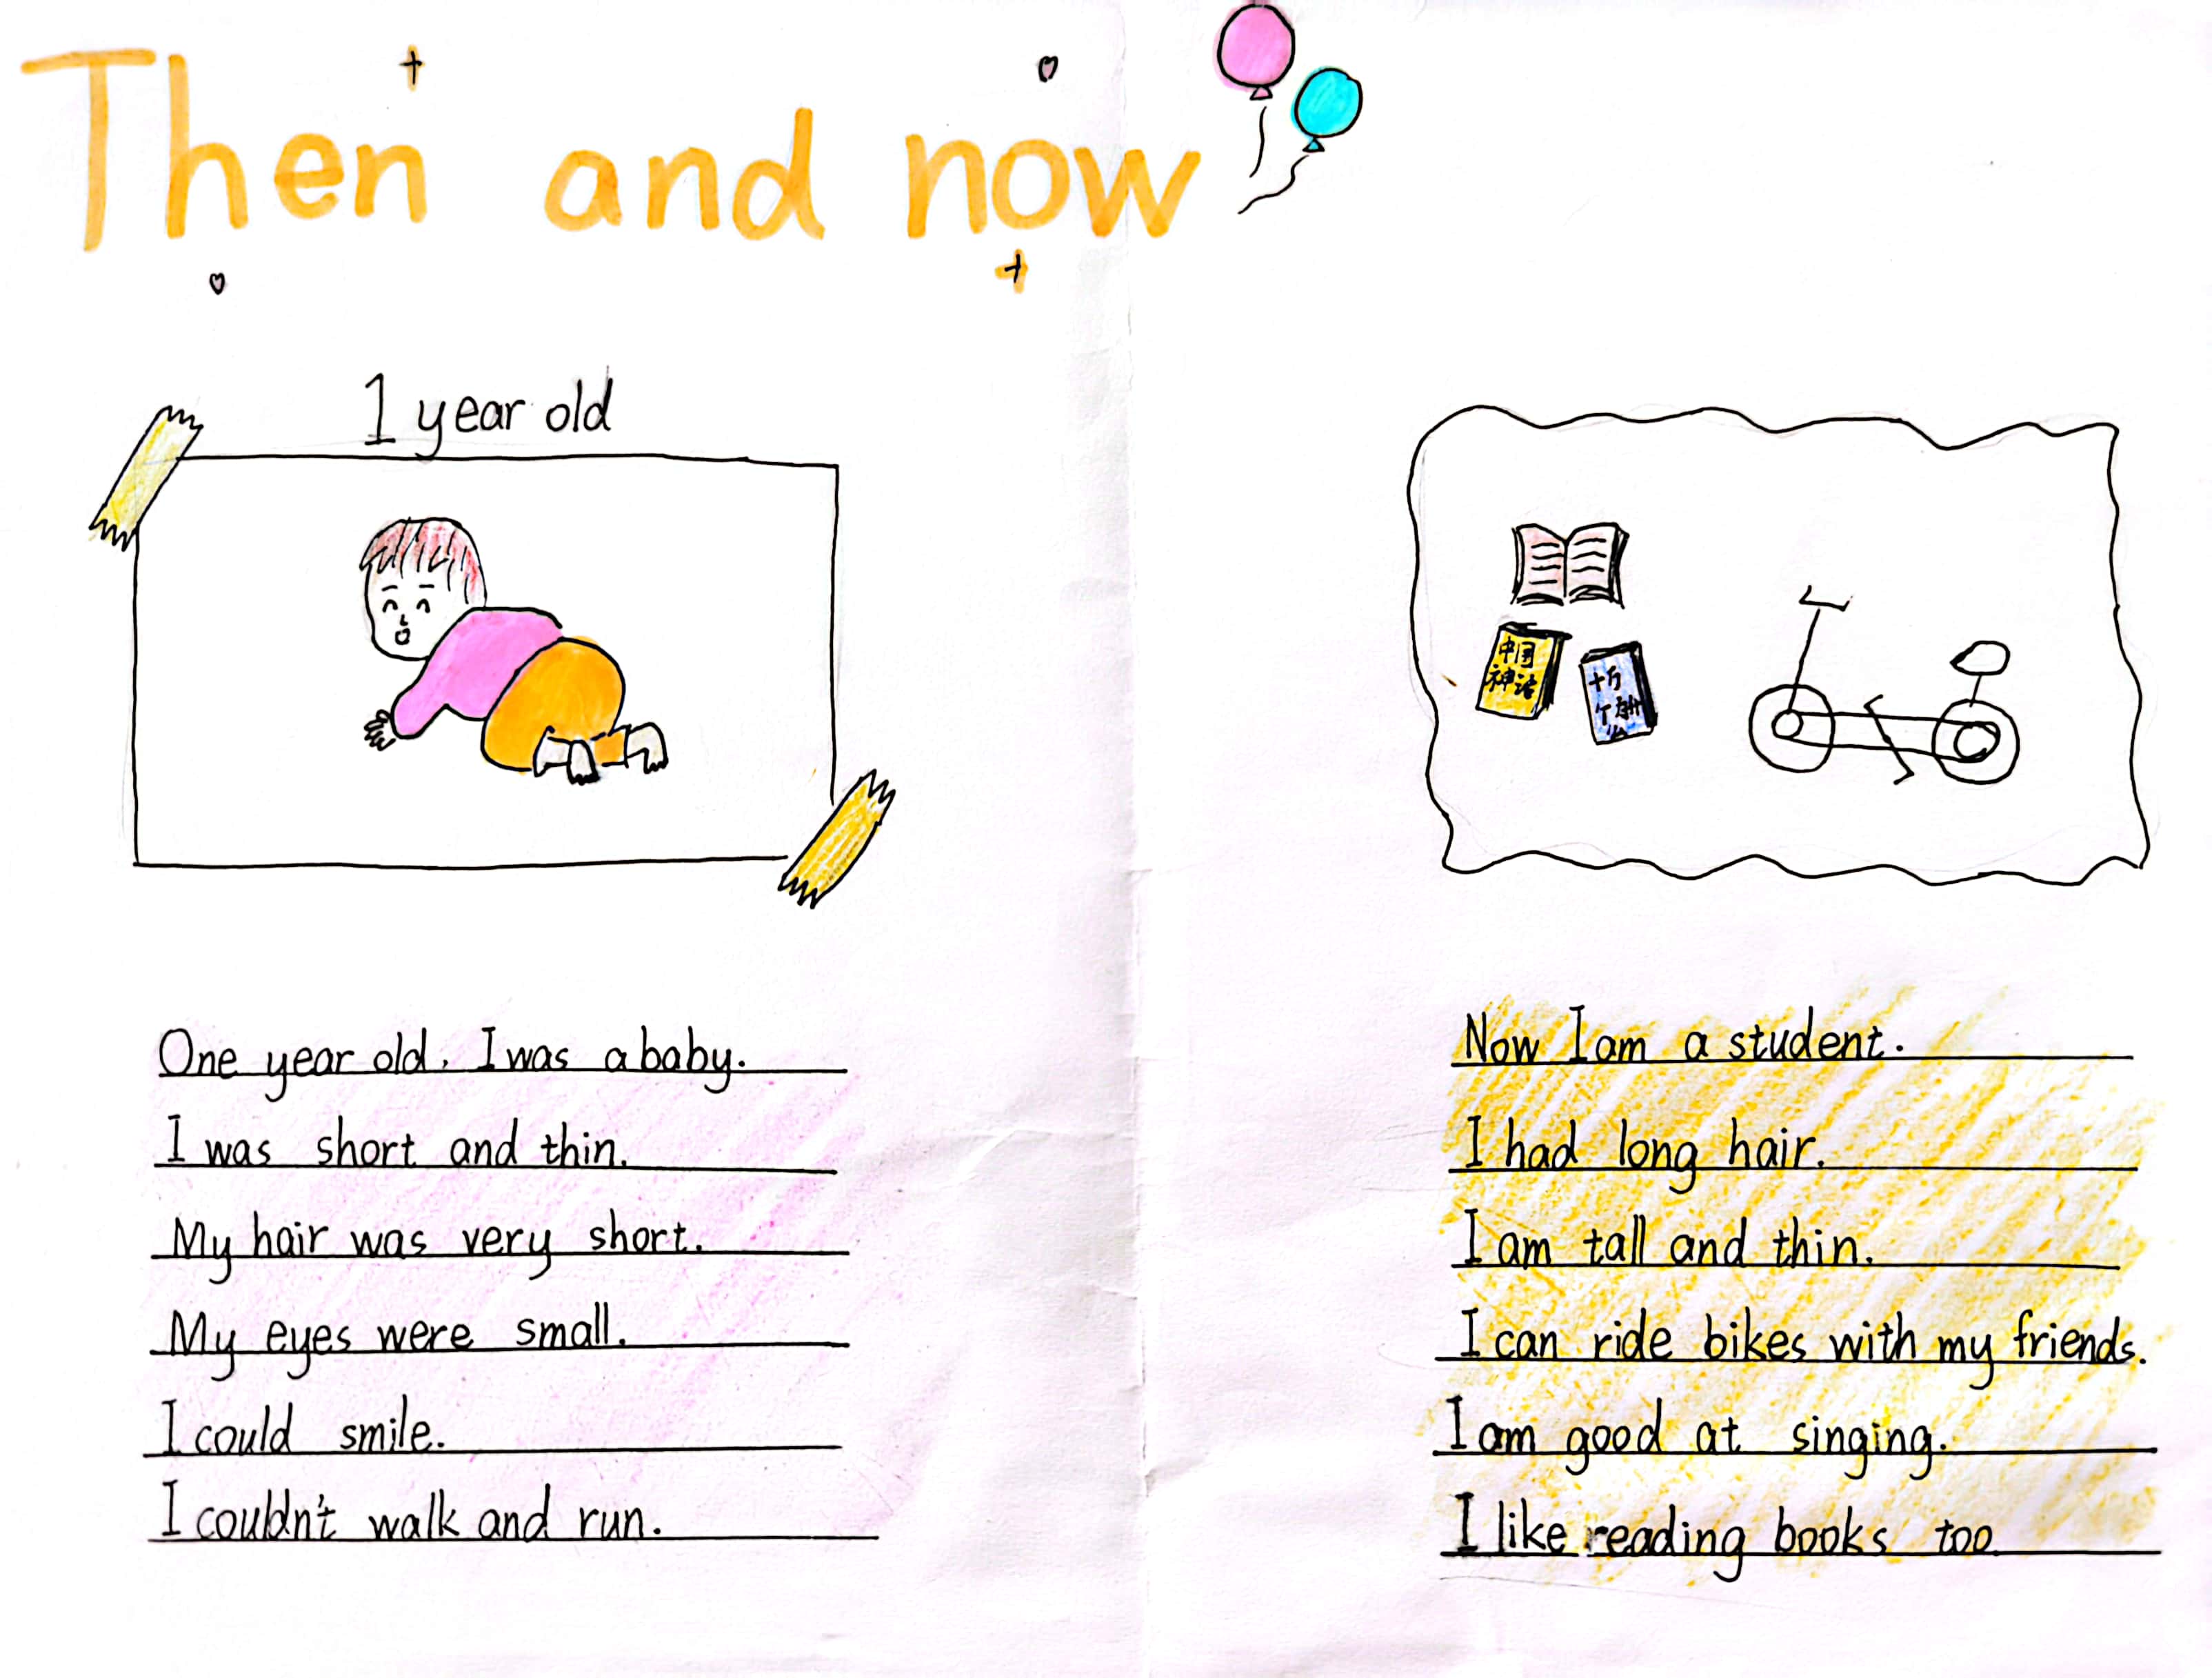 Then and now
1 year old
中国
神话
十万
个
么
One year old, I was a baby.
I was short and thin.
My hair was very short.
My eyes were small.
I could smile.
I couldn't walk and run.
Now I am a student.
I had long hair.
I am tall and thin.
I can ride bikes with my friends.
I am good at singing.
I like reading books too